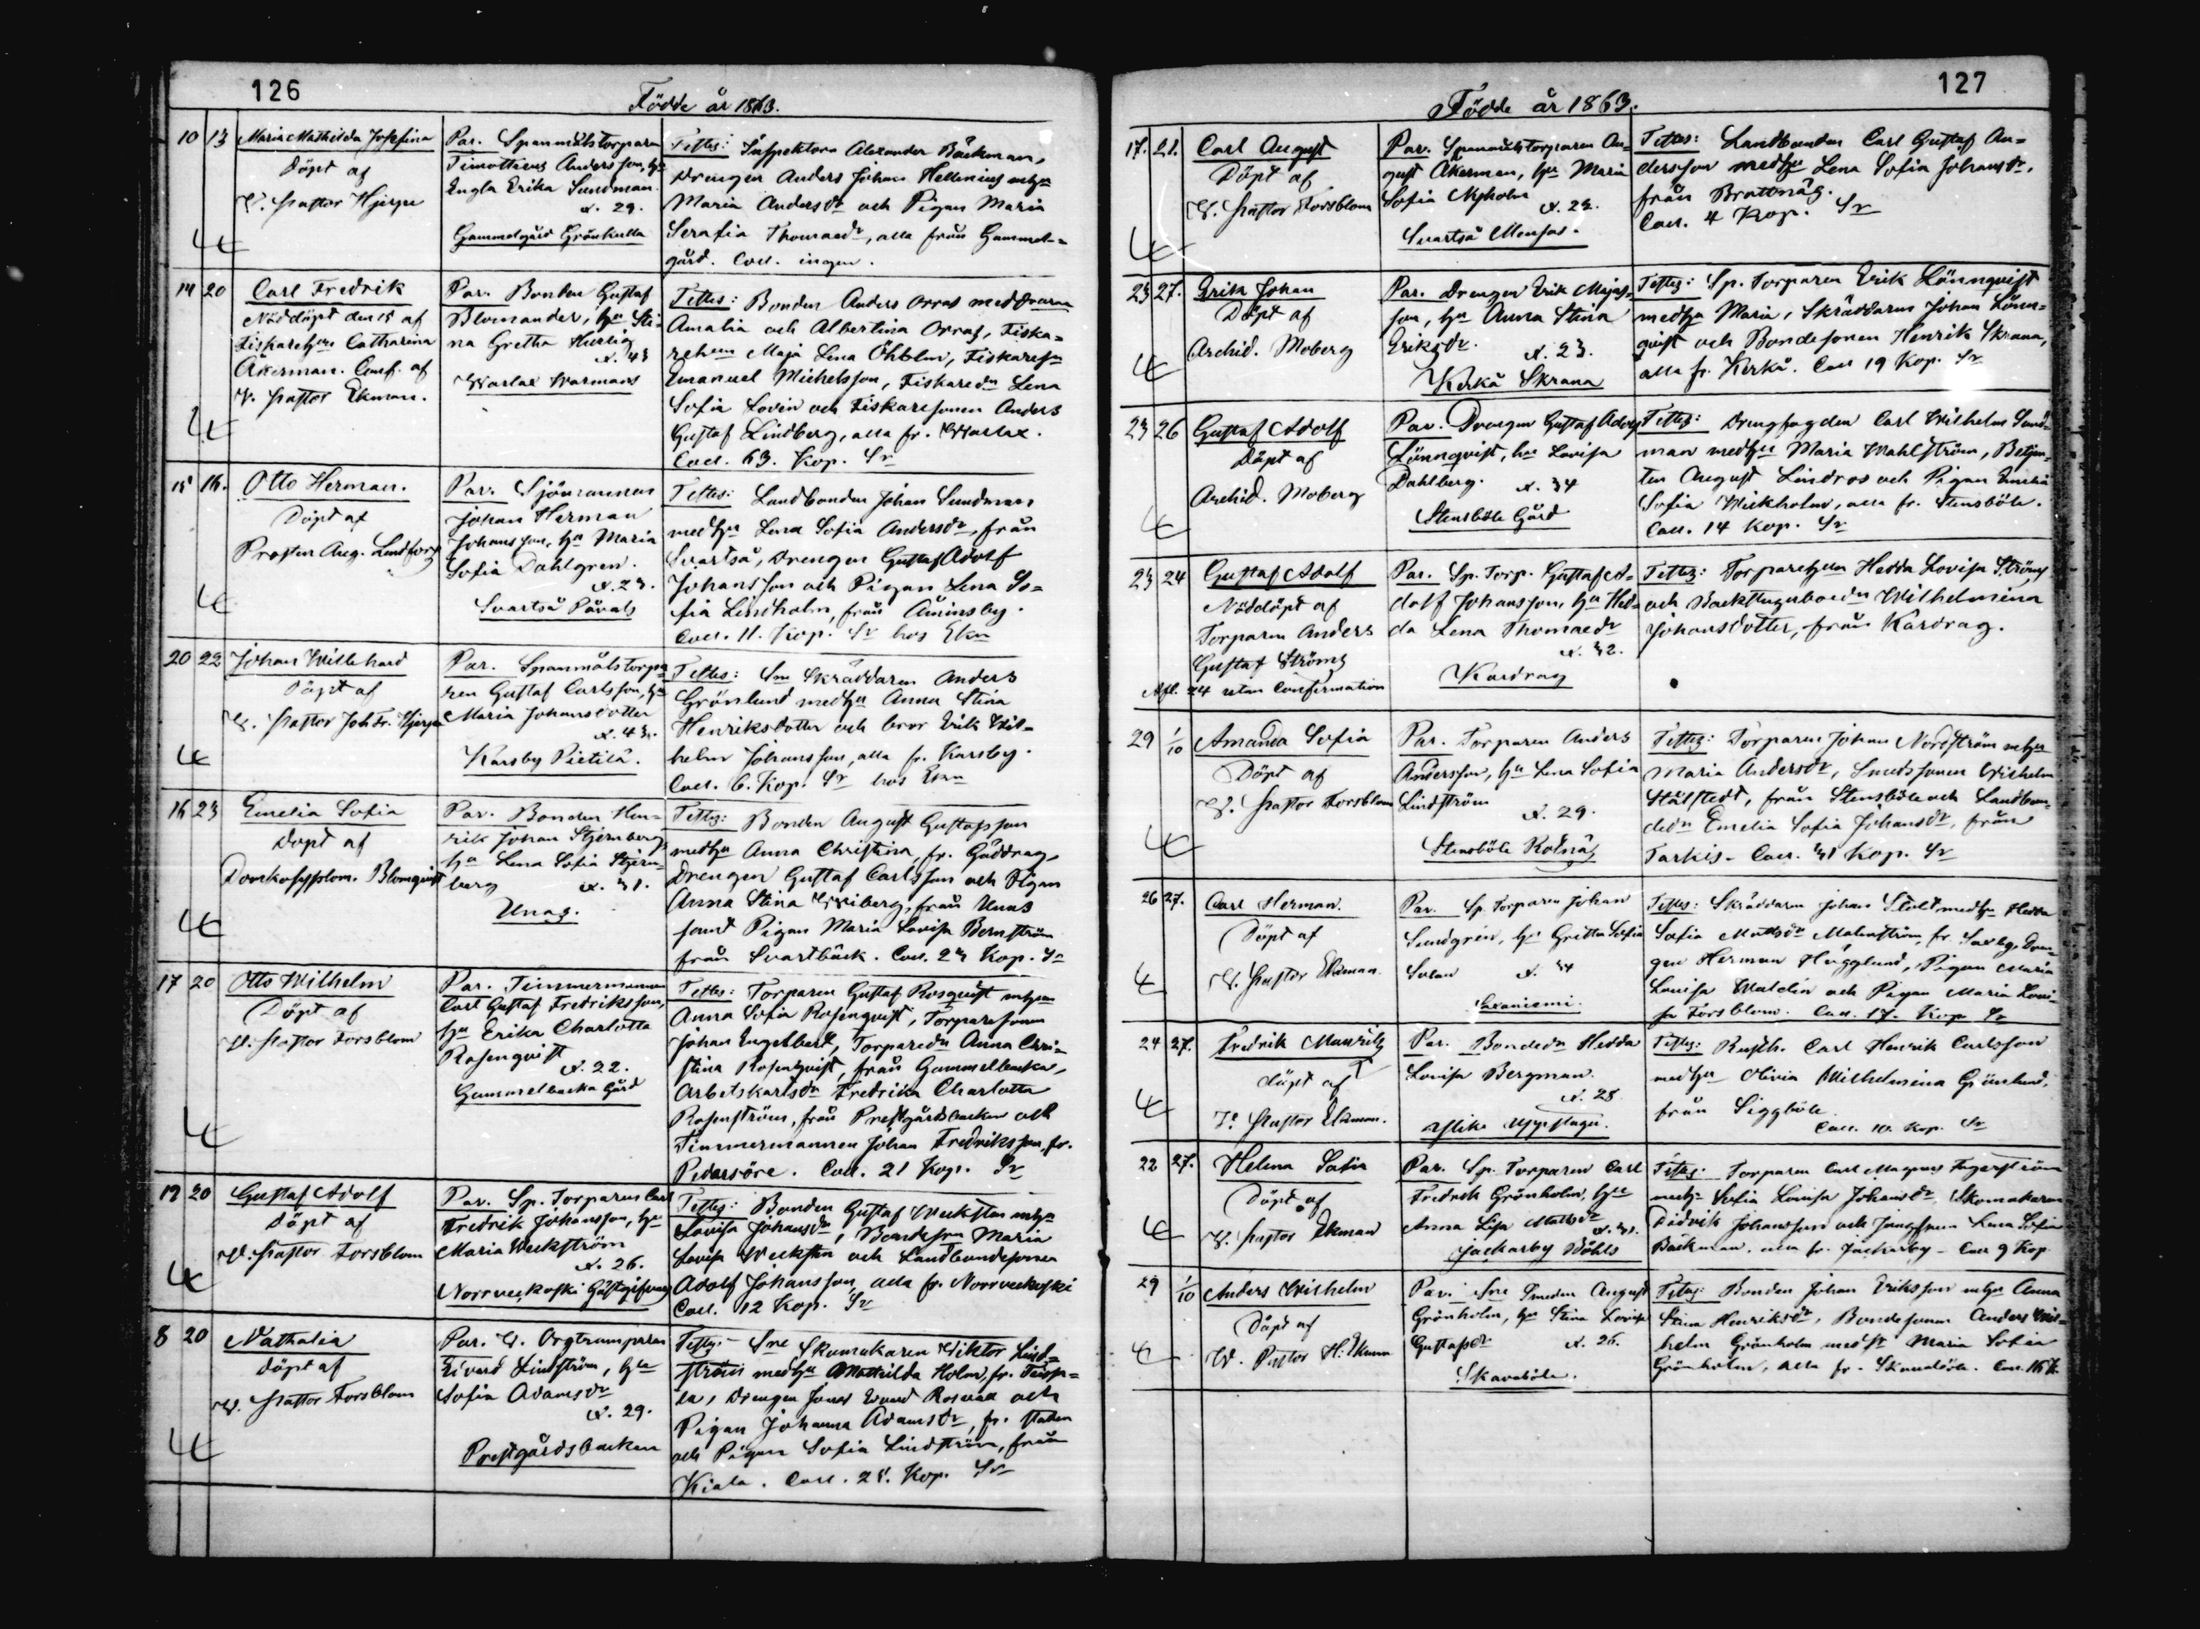 126
Födde år 1863.
10 13 Maria Mathilda Josefina
Döpt af
V. Pastor Hjerpe
Par. Spanmålstorparen
Timotheus Andersson, hu
Engla Erika Sundman.
x. 29.
Gammelgård Grönkulla
Testes: Inspektorn Alexander Bäckman,
Drengen Anders Johan Hellenius mhu
Maria Andersdr och Pigan Maria
Serafia Thomaedr, alla från Gammel-
gård. Coll. ingen.
14 20 Carl Fredrik
Nöddöpt den 15 af
Fiskarehun Catharina
Åkerman. Conf. af
V. Pastor Ekman.
Par. Bonden Gustaf
Blomander, hu Sti-
na Gretha Hurtig
x. 43
Warlax Warmans
Testes: Bonden Anders Orras med
Amalia och Albertina Orras, Fiska-
rehun Maja Lena Öhblom, Fiskaresn
Emanuel Michelsson, Fiskaredn Lena
Sofia Lovin och Fiskaresonen Anders
Gustaf Lindberg, alla fr. Warlax.
Coll. 63. Kop. Sr
15 16. Otto Herman.
Döpt af
Prosten Aug. Lindfors
Par. Sjömannen
Johan Herman
Johansson, hu Maria
Sofia Dahlgren.
x. 23.
Svartså Påvals
Testes: Landbonden Johan Sundman
medhu Lena Sofia Andersdr, från
Svartså, Drengen Gustaf Adolf
Johansson och Pigan Lena So-
fia Lindholm, från
Coll. 11. Kop. Sr hos Ekn
20 22 Johan Willehard
Döpt af
V. Pastor Joh. Fr. Hjerpe
Par. Spanmålstorpa-
ren Gustaf Carlsson, hu
Maria Johansdotter
x. 43.
Karsby Pietilä.
Testes: Sn Skräddaren Anders
Grönlund medhu Anna Stina
Henriksdotter och bror Erik Wil-
helm Johansson, alla fr. Karsby.
Coll. 6. Kop. Sr hos Ekn
16 23 Emelia Sofia
Döpt af
Blomqvist
Par. Bonden Hen-
rik Johan Stjernberg,
hu Lena Sofia Stjern-
berg x. 31.
Unas.
Testes: Bonden August Gustafsson
medhu Anna Christina, fr. Gäddrag,
Drengen Gustaf Carlsson och Pigan
Anna Stina Wiberg, från Unas
samt Pigan Maria Lovisa Bernström
från Svartbäck. Coll. 23 Kop. Sr
17 20 Otto Wilhelm
Döpt af
V. Pastor Forsblom
Par. Timmermannen
Carl Gustaf Fredriksson,
hu Erika Charlotta
Rosenqvist
x. 22.
Gammelbacka Gård
Testes: Torparen Gustaf Rosqvist mhu
Anna Sofia Rosenqvist, Torparesonen
Johan Engelbert, Torparedn Anna Chri-
stina Rosenqvist, från Gammelbacka,
Arbetskarlsdr Fredrika Charlotta
Rosenström, från Prestgårdsbacken och
Timmermannen Johan Fredriksson, fr.
Pedersöre. Coll. 21 Kop. Sr
19 20 Gustaf Adolf
Döpt af
V. Pastor Forsblom
Par. Sp. Torparen Carl
Fredrik Johansson, hu
Maria Weckström
x. 26.
Norrveckoski Gästgifveri
Testes: Bonden Gustaf Weckstén mhu
Lovisa Johansdr, Maria
Lovisa Weckstén och Landbondesonen
Adolf Johansson, alla fr. Norrveckoski
Coll. 12 Kop. Sr
8 20 Nathalia
Döpt af
V. Pastor Forsblom
Par. V. Orgtramparen
Edvard Lindström, hu
Sofia Adamsdr
x. 29.
Prestgårdsbacken
Testes: Sne Skomakaren Viktor Lind-
ström medhu Mathilda Holm, fr.
Drengen Edvard och
Pigan Johanna Adamsdr, fr. staden
och Pigan Sofia Lindström, från
Kiala. Coll. 25. Kop. Sr
127
Födde år 1863.
17. 21. Carl August
Döpt af
V. Pastor Forsblom
Par. Spanmålstorparen Au-
gust Åkerman, hu Maria
Sofia Nyholm
x. 22.
Svartså Monsas.
Testes: Landbonden Carl Gustaf An-
dersson medhu Lena Sofia Johansdr,
från Brattnäs.
Coll. 4 Kop. Sr
23 27. Erik Johan
Döpt af
Archid. Moberg
Par. Drengen Erik Majas-
son, hu Anna Stina
Eriksdr. x. 23.
Kerkå Skrana
Testes: Sp. Torparen Erik Lönnqvist
medhu Maria, Skräddaren Johan Lönn-
qvist och Bondesonen Henrik Skrana,
alla fr. Kerkå. Coll 19 Kop. Sr
23 26 Gustaf Adolf
Döpt af
Archid. Moberg
Par. Drengen Gustaf Adolf
Lönnqvist, hu Lovisa
Dahlberg. x. 34
Stensböle Gård
Testes: Drengfogden Carl Wilhelm Sund-
man medhu Maria Wahlström, Betjen-
ten August Lindros och Pigan Emelia
Sofia Wickholm, alla fr. Stensböle.
Coll. 14 Kop. Sr
23 24 Gustaf Adolf
Nöddöpt af
Torparen Anders
Gustaf Ströms
Afl. 24 utan Confirmation
Par. Sp. Torp. Gustaf A-
dolf Johansson, hu Hed-
da Lena Thomaedr
x. 32.
Kardrag
Testes: Torparehun Hedda Lovisa Ströms
och Backstuguboedn Wilhelmina
Johansdotter, från Kardrag.
29 1/10 Amanda Sofia
Döpt af
V. Pastor Forsblom
Par. Torparen Anders
Andersson, hu Lena Sofia
Lindström
x. 29.
Stensböle Rotnäs
Testes: Torparen Johan Nordström mhu
Maria Andersdr, Smedssonen Wilhelm
Stålstedt, från Stensböle och Landbon-
dedn Emelia Sofia Johansdr, från
Tarkis. Coll. 31 Kop. Sr
26 27. Carl Herman.
Döpt af
V. Pastor Ekman.
Par. Sp. Torparen Johan
Sundgrén, hu Gretta Sofia
x. 34
Saxaniemi.
Testes: Skräddaren Johan Stolt medhu Hedda
Sofia Mattsdr Malmström, fr. Saxby, Dren-
gen Herman Hägglund, Pigan Maria
Lovisa Walelin och Pigan Maria Lovi-
sa Forsblom. Coll. 17. Kop. Sr
24 27. Fredrik Mauritz
Döpt af
V. Pastor Ekman.
Par. Bondedn Hedda
Lovisa Bergman.
x. 28
Ylike Uppstugu.
Testes: Rusth. Carl Henrik Carlsson
medhu Olivia Wilhelmina Grönlund,
från Siggböle.
Coll. 10. Kop. Sr
22 27. Helena Sofia
Döpt af
V. Pastor Ekman
Par. Sp. Torparen Carl
Fredrik Grönholm, hu
Anna Lisa Mattsdr
x. 31.
Jackarby Böhls
Testes: Torparen Carl Magnus Fagerström
medhu Sofia Lovisa Johansdr, Skomakaren
Didrik Johansson och Jungfrun Lena Sofia
Bäckman, alla fr. Jackarby. Coll 9 Kop
29 1/10 Anders Wilhelm
Döpt af
V. Pastor H. Ekman
Par. Sne Smeden August
Grönholm, hu Stina Lovisa
Gustafsdr x. 26.
Skaveböle.
Testes: Bonden Johan Eriksson mhu Anna
Stina Henriksdr, Bondesonen Anders Wil-
helm Grönholm medst Maria Sofia
Grönholm, alla fr. Skaveböle. Coll. 16 K.